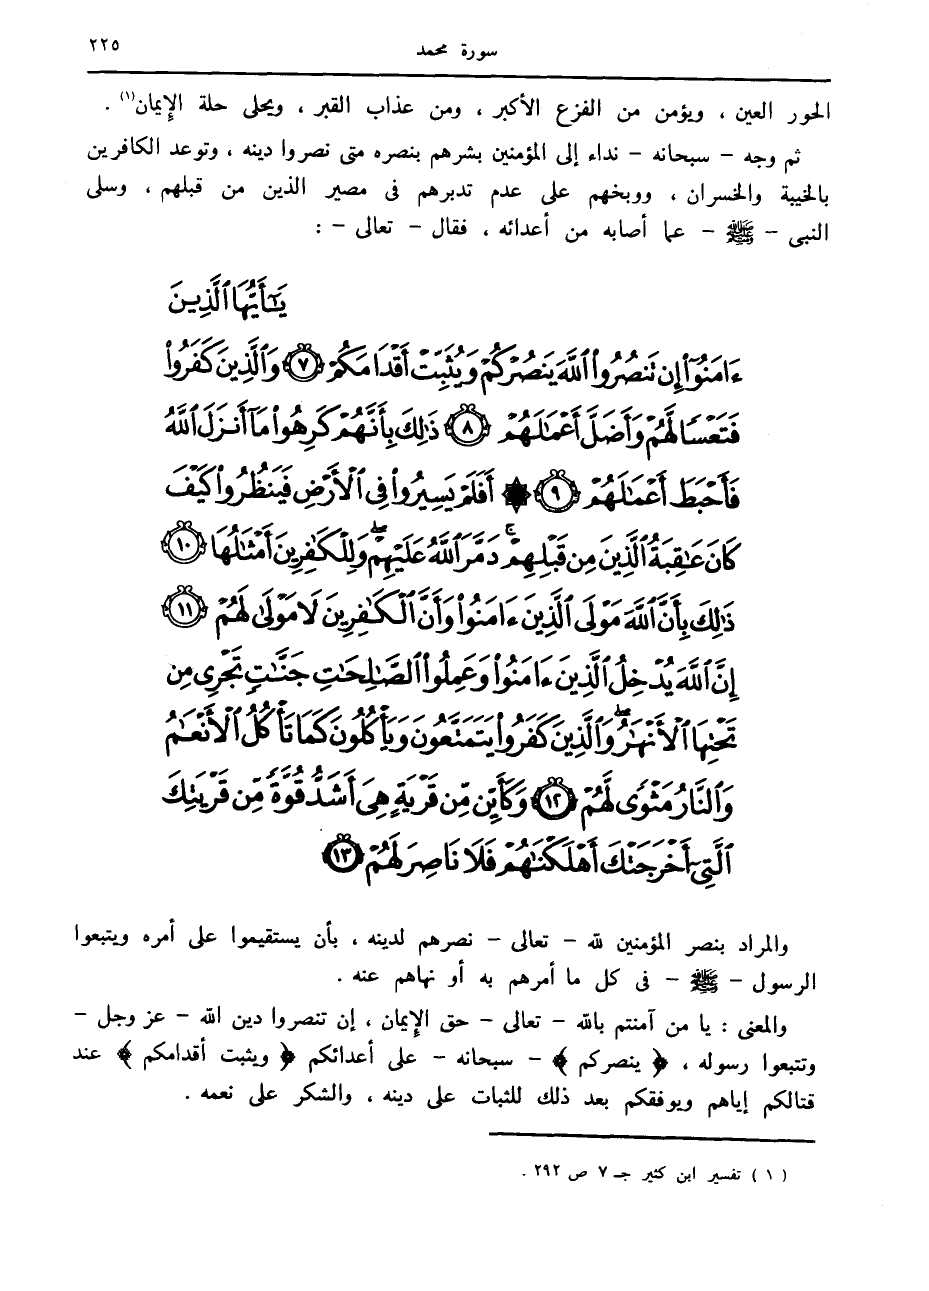 سورة محمد ٢٢٥
الحور العين ، ويؤمن من الفزع الأكبر ، ومن عذاب القبر ، ويحلى حلة الإِيمان(١) .
ثم وجه – سبحانه – نداء إلى المؤمنين بشرهم بنصره متى نصروا دينه ، وتوعد الكافرين
بالخيبة والخسران ، ووبخهم على عدم تدبرهم فى مصير الذين من قبلهم ، وسلى
النبى – ﷺ – عما أصابه من أعدائه ، فقال – تعالى – :
يَٰٓأَيُّهَا ٱلَّذِينَ
ءَامَنُوٓا۟ إِن تَنصُرُوا۟ ٱللَّهَ يَنصُرْكُمْ وَيُثَبِّتْ أَقْدَامَكُمْ ۝٧ وَٱلَّذِينَ كَفَرُوا۟
فَتَعْسًا لَّهُمْ وَأَضَلَّ أَعْمَٰلَهُمْ ۝٨ ذَٰلِكَ بِأَنَّهُمْ كَرِهُوا۟ مَآ أَنزَلَ ٱللَّهُ
فَأَحْبَطَ أَعْمَٰلَهُمْ ۝٩ ۞ أَفَلَمْ يَسِيرُوا۟ فِى ٱلْأَرْضِ فَيَنظُرُوا۟ كَيْفَ
كَانَ عَٰقِبَةُ ٱلَّذِينَ مِن قَبْلِهِمْ ۚ دَمَّرَ ٱللَّهُ عَلَيْهِمْ ۖ وَلِلْكَٰفِرِينَ أَمْثَٰلُهَا ۝١٠
ذَٰلِكَ بِأَنَّ ٱللَّهَ مَوْلَى ٱلَّذِينَ ءَامَنُوا۟ وَأَنَّ ٱلْكَٰفِرِينَ لَا مَوْلَىٰ لَهُمْ ۝١١
إِنَّ ٱللَّهَ يُدْخِلُ ٱلَّذِينَ ءَامَنُوا۟ وَعَمِلُوا۟ ٱلصَّٰلِحَٰتِ جَنَّٰتٍ تَجْرِى مِن
تَحْتِهَا ٱلْأَنْهَٰرُ ۖ وَٱلَّذِينَ كَفَرُوا۟ يَتَمَتَّعُونَ وَيَأْكُلُونَ كَمَا تَأْكُلُ ٱلْأَنْعَٰمُ
وَٱلنَّارُ مَثْوًى لَّهُمْ ۝١٢ وَكَأَيِّن مِّن قَرْيَةٍ هِىَ أَشَدُّ قُوَّةً مِّن قَرْيَتِكَ
ٱلَّتِىٓ أَخْرَجَتْكَ أَهْلَكْنَٰهُمْ فَلَا نَاصِرَ لَهُمْ ۝١٣
والمراد بنصر المؤمنين لله – تعالى – نصرهم لدينه ، بأن يستقيموا على أمره ويتبعوا
الرسول – ﷺ – فى كل ما أمرهم به أو نهاهم عنه .
والمعنى : يا من آمنتم بالله – تعالى – حق الإِيمان ، إن تنصروا دين الله – عز وجل –
وتتبعوا رسوله ، ﴿ ينصركم ﴾ – سبحانه – على أعدائكم ﴿ ويثبت أقدامكم ﴾ عند
قتالكم إياهم ويوفقكم بعد ذلك للثبات على دينه ، والشكر على نعمه .
( ١ ) تفسير ابن كثير جـ ٧ ص ٢٩٢ .